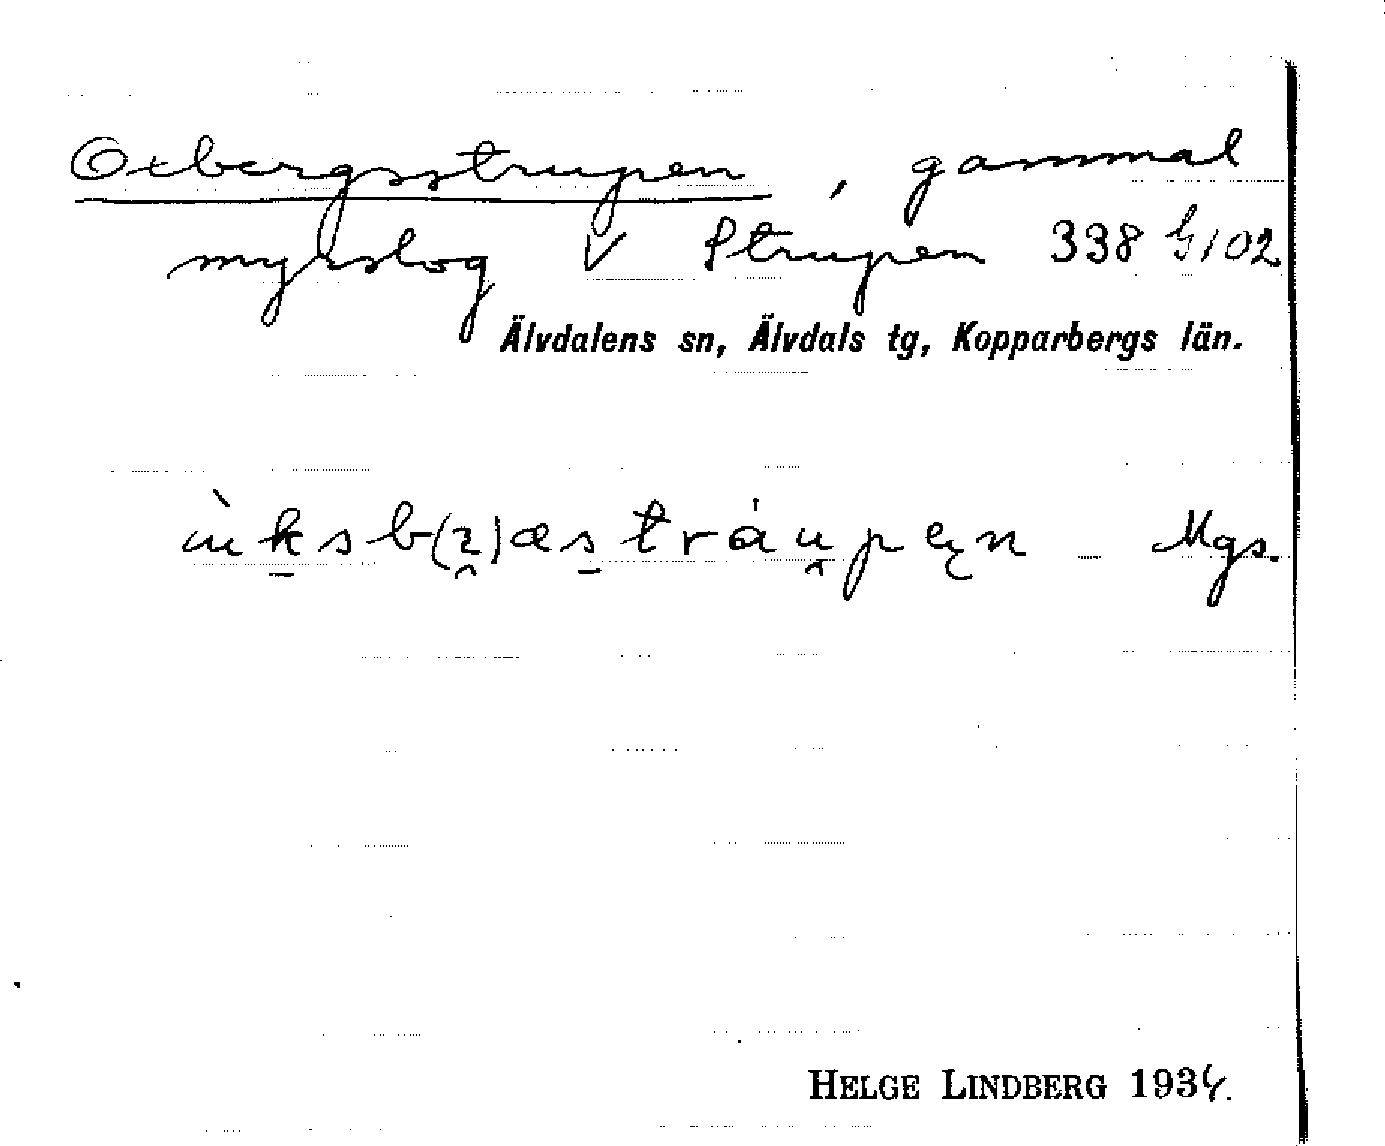 Oxbergsstrupen, gammal
myrslog V Strupen 338 G102
Älvdalens sn, Älvdals tg, Kopparbergs län.
Mgs.
HELGE LINDBERG 1934.